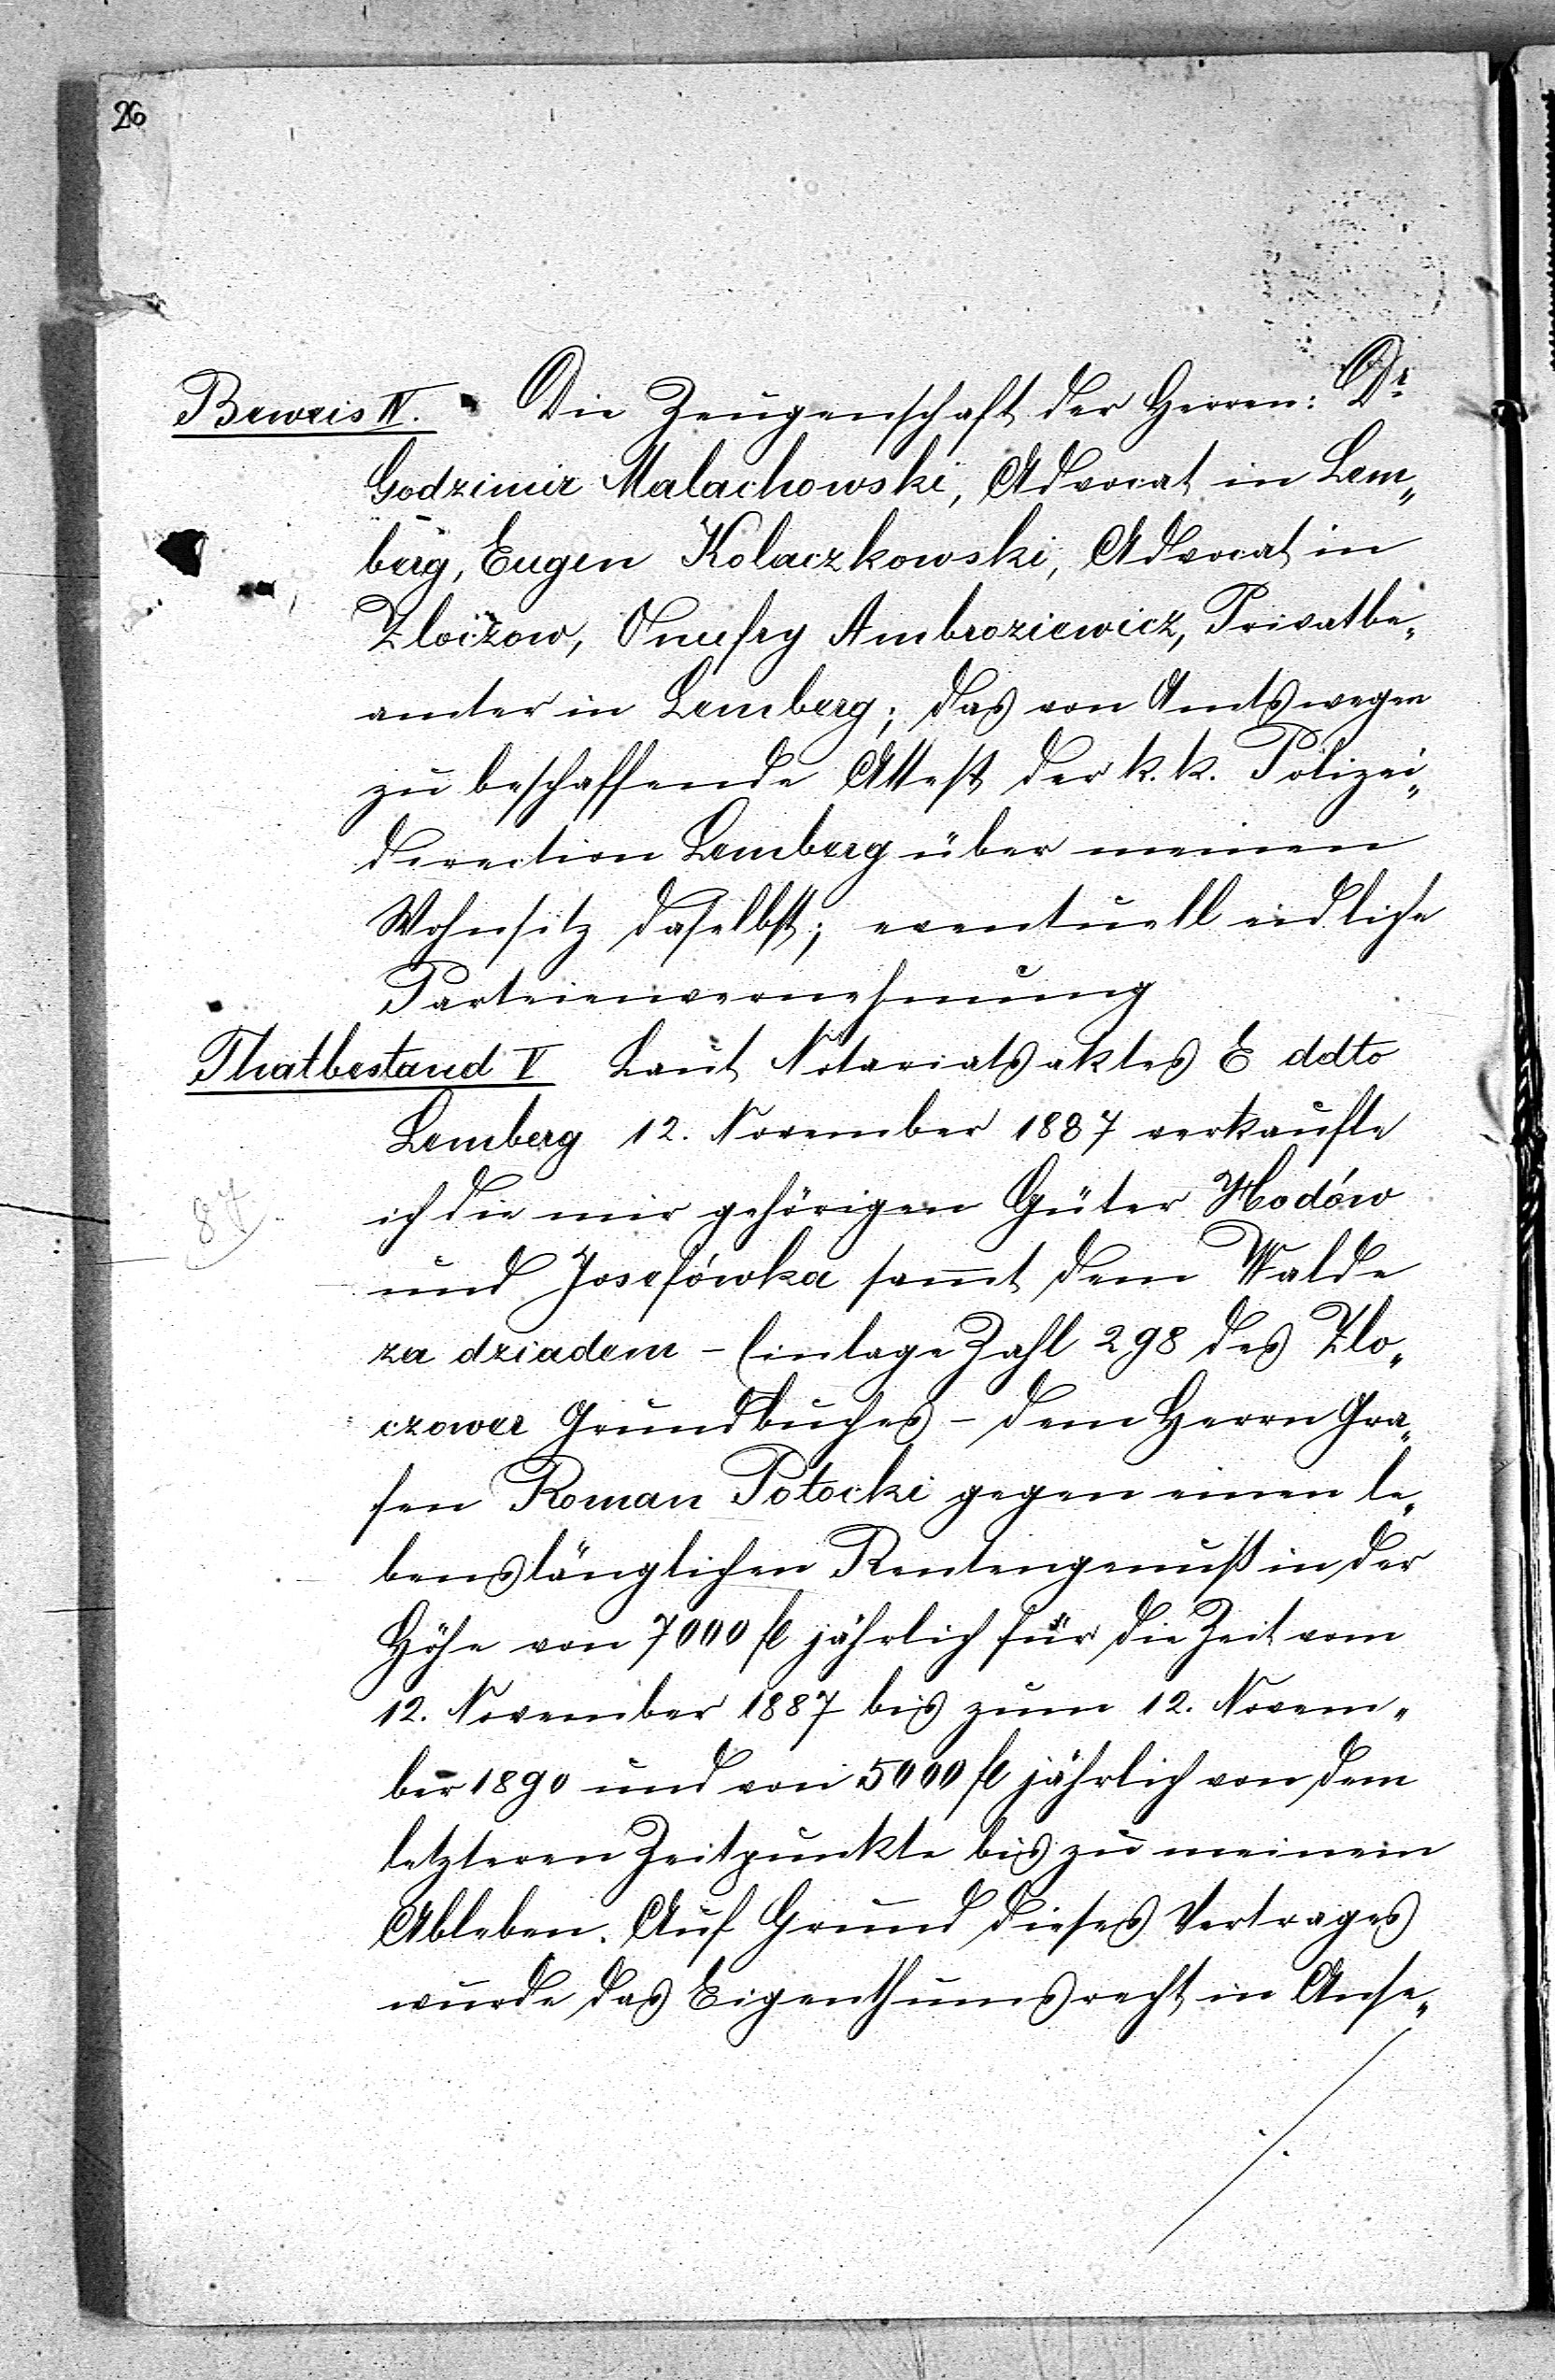 26
Beweis IV. Die Zeugenschaft der Herren: Dr
Godzimir Malachowski, Advocat in Lem„
berg, Eugen Kolaczkowski, Advocat in
Zloczow, Onufry Ambroziewicz, Privatbe„
amter in Lemberg; das von Amtswegen
zu beschaffende Attest der k. k. Polizei„
direction Lemberg über meinen
Wohnsitz daselbst; eventuell eidliche
Parteienvernehmung
Thatbestand V Laut Notariatsaktes E ddto
Lemberg 12. November 1887 verkaufte
ich die mir gehörigen Güter Hodów
87
und Josefówka sam̄t dem Walde
za dziadem – Einlage Zahl 298 des Zlo„
czower Grundbuches – dem Herrn Gra„
fen Roman Potocki gegen einen le„
benslänglichen Rentengenuß in der
Höhe von 7000 fl jährlich für die Zeit vom
12. November 1887 bis zum 12. Novem„
ber 1890 und von 5000 fl jährlich von dem
letzteren Zeitpunkte bis zu meinem
Ableben. Auf Grund dieses Vertrages
wurde das Eigenthumsrecht in Anse„
./.